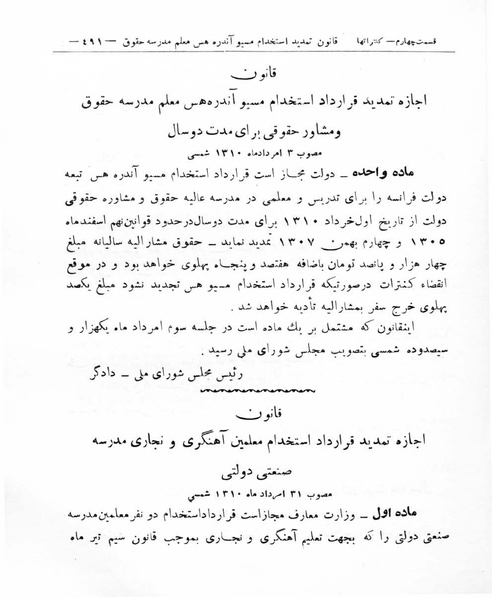 قسمت چهارم — کنتراتها    قانون تمدید استخدام مسیو آندره هس معلم مدرسه حقوق    — ۴۹۱ —
قانون
اجازه تمدید قرارداد استخدام مسیو آندره‌هس معلم مدرسه حقوق
و مشاور حقوقی برای مدت دوسال
مصوب ۳ امردادماه ۱۳۱۰ شمسی
ماده واحده — دولت مجاز است قرارداد استخدام مسیو آندره هس تبعه
دولت فرانسه را برای تدریس و معلمی در مدرسه عالیه حقوق و مشاوره حقوقی
دولت از تاریخ اول خرداد ۱۳۱۰ برای مدت دوسال درحدود قوانین نهم اسفندماه
۱۳۰۵ و چهارم بهمن ۱۳۰۷ تمدید نماید — حقوق مشارالیه سالیانه مبلغ
چهار هزار و پانصد تومان باضافه هفتصد و پنجاه پهلوی خواهد بود و در موقع
انقضاء کنترات درصورتیکه قرارداد استخدام مسیو هس تجدید نشود مبلغ یکصد
پهلوی خرج سفر بمشارالیه تأدیه خواهد شد .
اینقانون که مشتمل بر یك ماده است در جلسه سوم امرداد ماه یکهزار و
سیصدوده شمسی بتصویب مجلس شورای ملی رسید .
رئیس مجلس شورای ملی — دادگر
قانون
اجازه تمدید قرارداد استخدام معلمین آهنگری و نجاری مدرسه
صنعتی دولتی
مصوب ۳۱ امرداد ماه ۱۳۱۰ شمسی
ماده اول — وزارت معارف مجازاست قرارداداستخدام دو نفر معلمین مدرسه
صنعتی دولتی را که بجهت تعلیم آهنگری و نجاری بموجب قانون سیم تیر ماه